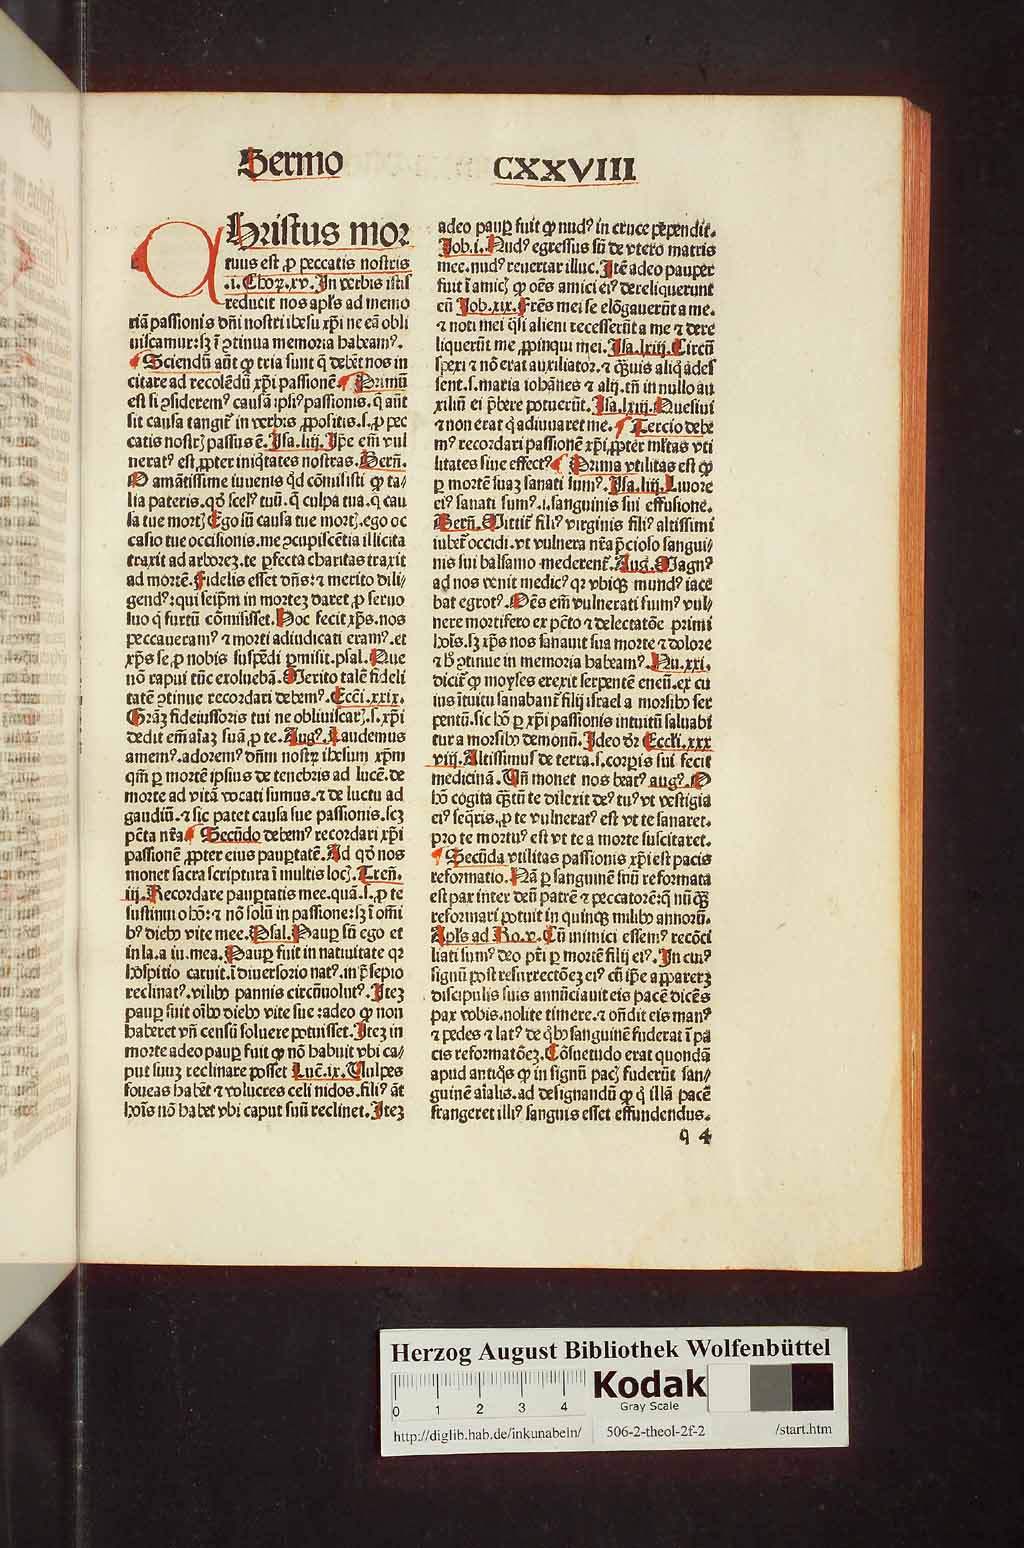 Sermo CXXVIII
Christus mor
tuus est ꝓ peccatis nostris
.i. Choꝝ.xv. In verbis istis
reducit nos apl̄s ad memo
riā passionis dn̄i nostri ihesu xp̄i ne eā obli
uiscamur: sꝫ ī ꝯtinua memoria habeamꝰ.
Sciendū aūt ꝙ tria sunt q̄ debēt nos in
citare ad recolēdū xp̄i passionē Primū
est si ꝯsideremꝰ causā ip̄iꝰ passionis. q̄ aūt
sit causa tangit᷑ in verbis ꝓpositis. s. ꝓ pec
catis nostrꝭ passus ē. Isa.liij. Ip̄e em̄ vul
neratꝰ est ꝓpter iniq̇tates nostras. Bern̄.
O amātissime iuuenis qd̄ cōmisisti ꝙ ta-
lia pateris. qd̄ scelꝰ tuū. q̄ culpa tua. q̄ cau
sa tue mortꝭ Ego sū causa tue mortꝭ. ego oc
casio tue occisionis. me ꝯcupiscētia illicita
traxit ad arboreꝫ. te ꝑfecta charitas traxit
ad mortē. Fidelis esset dn̄s: ⁊ merito dili-
gendꝰ: qui seip̄m in morteꝫ daret ꝓ seruo
suo q̇ furtū cōmisisset. Hoc fecit xp̄s. nos
peccaueramꝰ ⁊ morti adiudicati eramꝰ. et
xp̄s se ꝓ nobis suspēdi ꝑmisit. psal. Que
nō rapui tūc exoluebā. Merito talē fideli
tatē ꝯtinue recordari debemꝰ. Eccī.xxix.
Grāꝫ fideiussoris tui ne obliuiscarꝭ. s. xp̄i
dedit em̄ aīaꝫ suā ꝓ te. Augꝰ. Laudemus
amemꝰ. adoremꝰ dn̄m nostrꝫ ihesum xp̄m
qm̄ ꝑ mortē ipsius de tenebris ad lucē. de
morte ad vitā vocati sumus. ⁊ de luctu ad
gaudiū. ⁊ sic patet causa sue passionis. scꝫ
pc̄ta nr̄a Secūdo debemꝰ recordari xp̄i
passionē ꝓpter eius pauꝑtatē. Ad qd̄ nos
monet sacra scriptura ī multis locꝭ. Tren̄.
iij. Recordare pauꝑtatis mee. quā. s. ꝓ te
sustinui o hō: ⁊ nō solū in passione: sꝫ ī om̄i
bꝰ diebꝰ vite mee. Psal. Pauꝑ sū ego et
in la. a iu. mea. Pauꝑ fuit in natiuitate qꝛ
hospitio caruit. ī diuersorio natꝰ. in p̄sepio
reclinatꝰ. vilibꝰ pannis circūuolutꝰ. Iteꝫ
pauꝑ fuit oībꝰ diebꝰ vite sue: adeo ꝙ non
haberet vn̄ censū soluere potuisset. Iteꝫ in
morte adeo pauꝑ fuit ꝙ nō habuit vbi ca-
put suuꝫ reclinare posset Luē.ix. Vulpes
foueas habēt ⁊ volucres celi nidos. filiꝰ āt
hoīs nō habet vbi caput suū reclinet. Iteꝫ
adeo pauꝑ fuit ꝙ nudꝰ in cruce pependit.
Job.i. Nudꝰ egressus sū de vtero matris
mee. nudꝰ reuertar illuc. Itē adeo pauper
fuit ī amicꝭ ꝙ oēs amici eiꝰ dereliquerunt
eū Job.xix. Frēs mei se elōgauerūt a me.
⁊ noti mei q̄si alieni recesserūt a me ⁊ dere
liquerūt me ꝓpinqui mei. Isa.lxiij. Circū
spexi ⁊ nō erat auxiliator. ⁊ q̄uis aliq̇ ades
sent. s. maria iohānes ⁊ alij. tn̄ in nullo au
xiliū ei p̄bere potuerūt. Isa.lxiij. Quesiui
⁊ non erat q̇ adiuuaret me. Tercio debe
mꝰ recordari passionē xp̄i ꝓpter ml̄tas vti
litates siue effectꝰ Prima vtilitas est ꝙ
ꝑ mortē suaꝫ sanati sumꝰ. Isa.liij. Liuore
eiꝰ sanati sumꝰ. i. sanguinis sui effusione.
Bern̄. Mittit᷑ filiꝰ virginis filiꝰ altissimi
iubet᷑ occidi. vt vulnera nr̄a p̄cioso sangui-
nis sui balsamo medeant᷑. Aug. Magnꝰ
ad nos venit medicꝰ qꝛ vbiqꝫ mundꝰ iace
bat egrotꝰ. Oēs em̄ vulnerati sumꝰ vul-
nere mortifero ex pctō ⁊ delectatōe primi
hoīs. sꝫ xp̄s nos sanauit sua morte ⁊ dolore
⁊ hꝰ ꝯtinue in memoria habeamꝰ. Nu.xxi.
dicit᷑ ꝙ moyses erexit serpentē eneū. ex cu
ius ītuitu sanabant᷑ filij israel a morsibꝰ ser
pentū. sic hō ꝑ xp̄i passionis intuitū saluabi
tur a morsibꝰ demonū. Ideo dr̄ Eccli.xxx
viij. Altissimus de terra. s. corpis sui fecit
medicinā. Vn̄ monet nos beatꝰ augꝰ. O
hō cogita q̄tū te dilexit deꝰ tuꝰ vt vestigia
eiꝰ seq̄ris. ꝓ te vulneratꝰ est vt te sanaret.
pro te mortuꝰ est vt te a morte suscitaret.
Secūda vtilitas passionis xp̄i est pacis
reformatio. Nā ꝑ sanguinē suū reformata
est pax inter deū patrē ⁊ peccatorē: q̄ nūq̄ꝫ
reformari potuit in quinqꝫ milibꝰ annorū.
Apl̄s ad Ro.v. Cū inimici essemꝰ recōci
liati sumꝰ deo pr̄i ꝑ mortē filij eiꝰ. In cuiꝰ
signū post resurrectōeꝫ eiꝰ cū ip̄e apparerꝫ
discipulis suis annūciauit eis pacē dicēs
pax vobis. nolite timere. ⁊ on̄dit eis manꝰ
⁊ pedes ⁊ latꝰ de q̇bꝰ sanguinē fuderat ī pa
cis reformatōeꝫ. Cōsuetudo erat quondā
apud antiq̇s ꝙ in signū pacꝭ fuderūt san-
guinē aīalis. ad designandū ꝙ q̇ illā pacē
frangeret illiꝰ sanguis esset effundendus.
q 4
Herzog August Bibliothek Wolfenbüttel
0 1 2 3 4
Kodak
Gray Scale
http://diglib.hab.de/inkunabeln/ 506-2-theol-2f-2 /start.htm